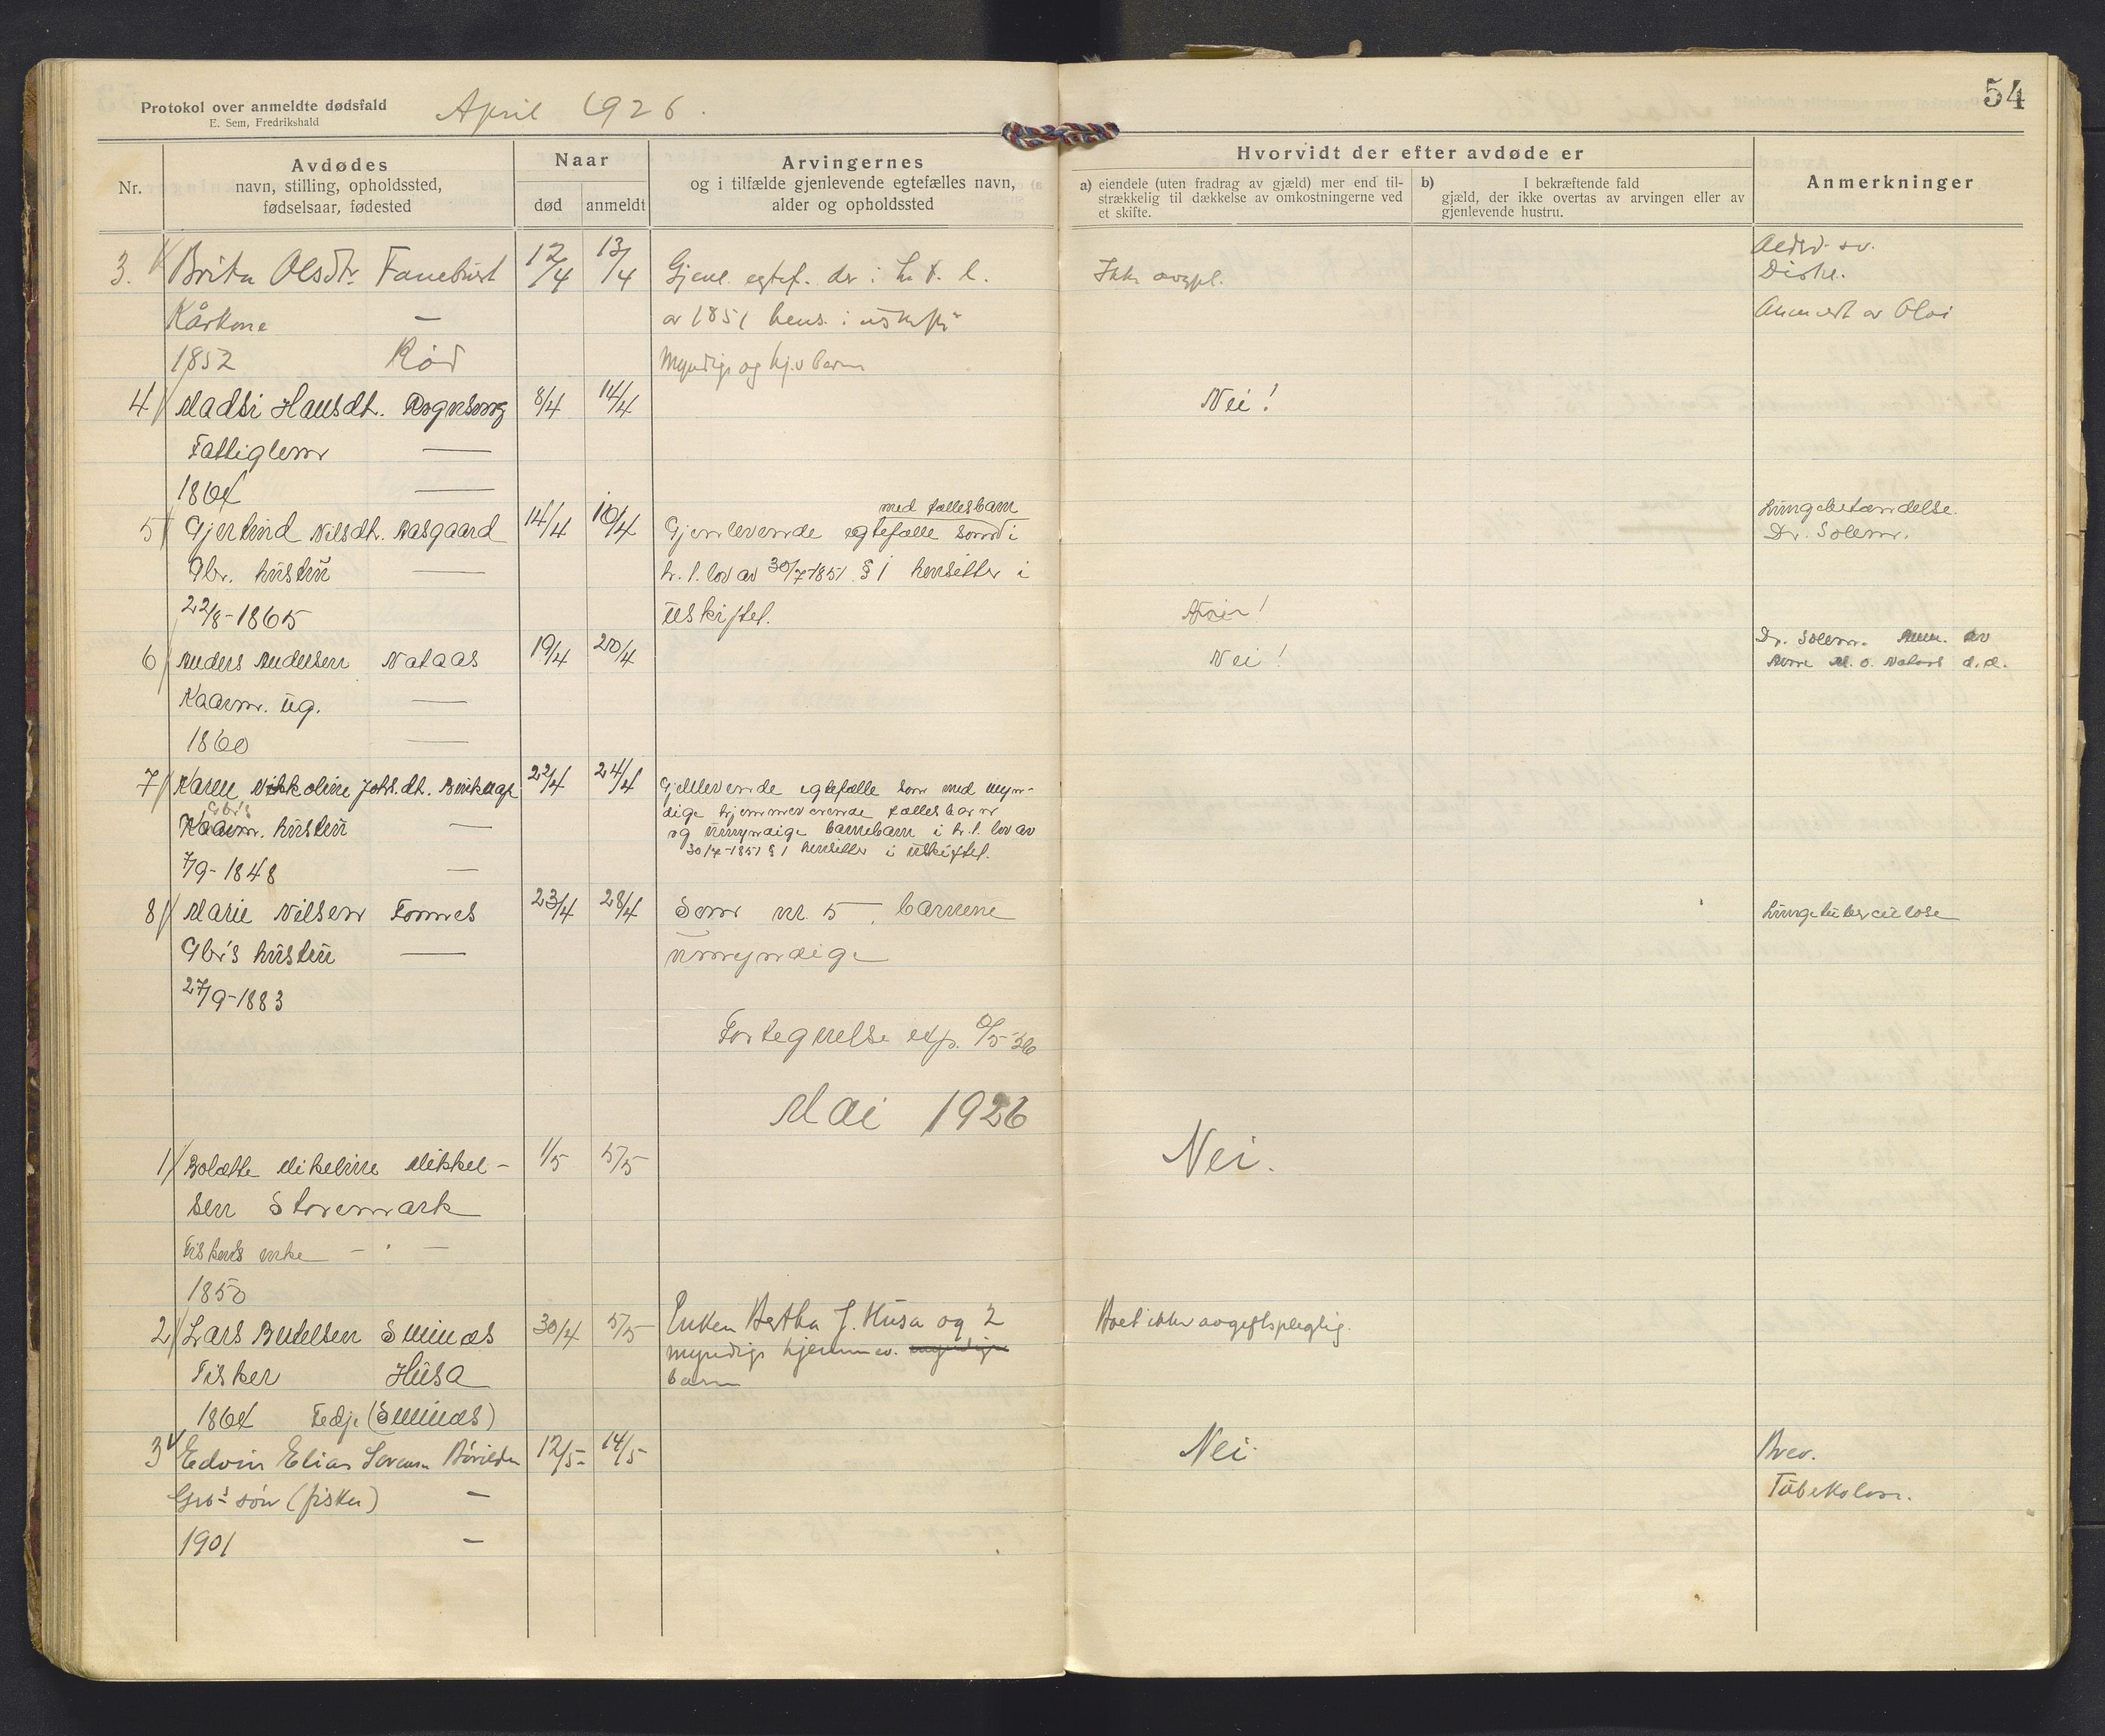 Protokol over anmeldte dødsfald
E. Sem, Fredrikshald
April 1926.
54
Nr.
Avdødes
navn, stilling, opholdssted,
fødselsaar, fødested
Naar
død
anmeldt
Arvingernes
og i tilfælde gjenlevende egtefælles navn,
alder og opholdssted
Hvorvidt der efter avdøde er
a) eiendele (uten fradrag av gjæld) mer end til-
strækkelig til dækkelse av omkostningerne ved
et skifte.
b) I bekræftende fald
gjæld, der ikke overtas av arvingen eller av
gjenlevende hustru.
Anmerkninger
3. Brita Olsdtr. Fanebust 12/4 13/4 Gjenl. egtef. der i h. t. l. Ikke avgpl.
Diskl.
Kårkone — av 1851 hens. i uskifte
1852 Rød Myndige og hj.v barn
4 Madsi Hansdt. Rognsvog 8/4 14/4 Nei!
Fattiglem —
1864 —
5 Gjertrud Nilsdt. Aasgaard 14/4 16/4 Gjenlevende egtefælle med fællesbarn som i
Lungebetændelse.
Dr. Solem.
Gbr. hustru — h. t. lov av 30/7 1851 § 1 hensitter i
22/8-1865 uskiftet.
6 Anders Andersen Nataas 19/4 20/4 Nei!
Dr. Solem. Anm. av
Kaarm. ug. —
1860 —
7 Karen Nikoline Johs.dt. 22/4 24/4 Gjenlevende egtefælle som med myn-
dige hjemmeværende fællesbarn
Gbr's
Kaarm. hustru — og umyndige barnebarn i h. t. lov av
30/7-1851 § 1 hensitter i uskiftet.
7/9-1848 —
8 Marie Nilsen Fonnes 23/4 28/4 Som nr. 5, barnene Lungetuberculose
Gbr's hustru — umyndige
27/9-1883
Fortegnelse exp. 6/5-26
Mai 1926
1 Bolette Mikeline Mikkel- 1/5 5/5 Nei.
sen Storemark
Fiskers enke — —
1850
2 Lars Andersen Sminæs 30/4 5/5 Enken Bertha J. Husa og 2 Boet ikke avgiftspligtig.
Fisker Husa myndige hjemmev. myndige
barn
1864 Fedje (Sminæs)
3 Edvin Elias 12/5 14/5 Nei Brev.
Gbs søn (fisker) — Tuberkolose.
1901 —